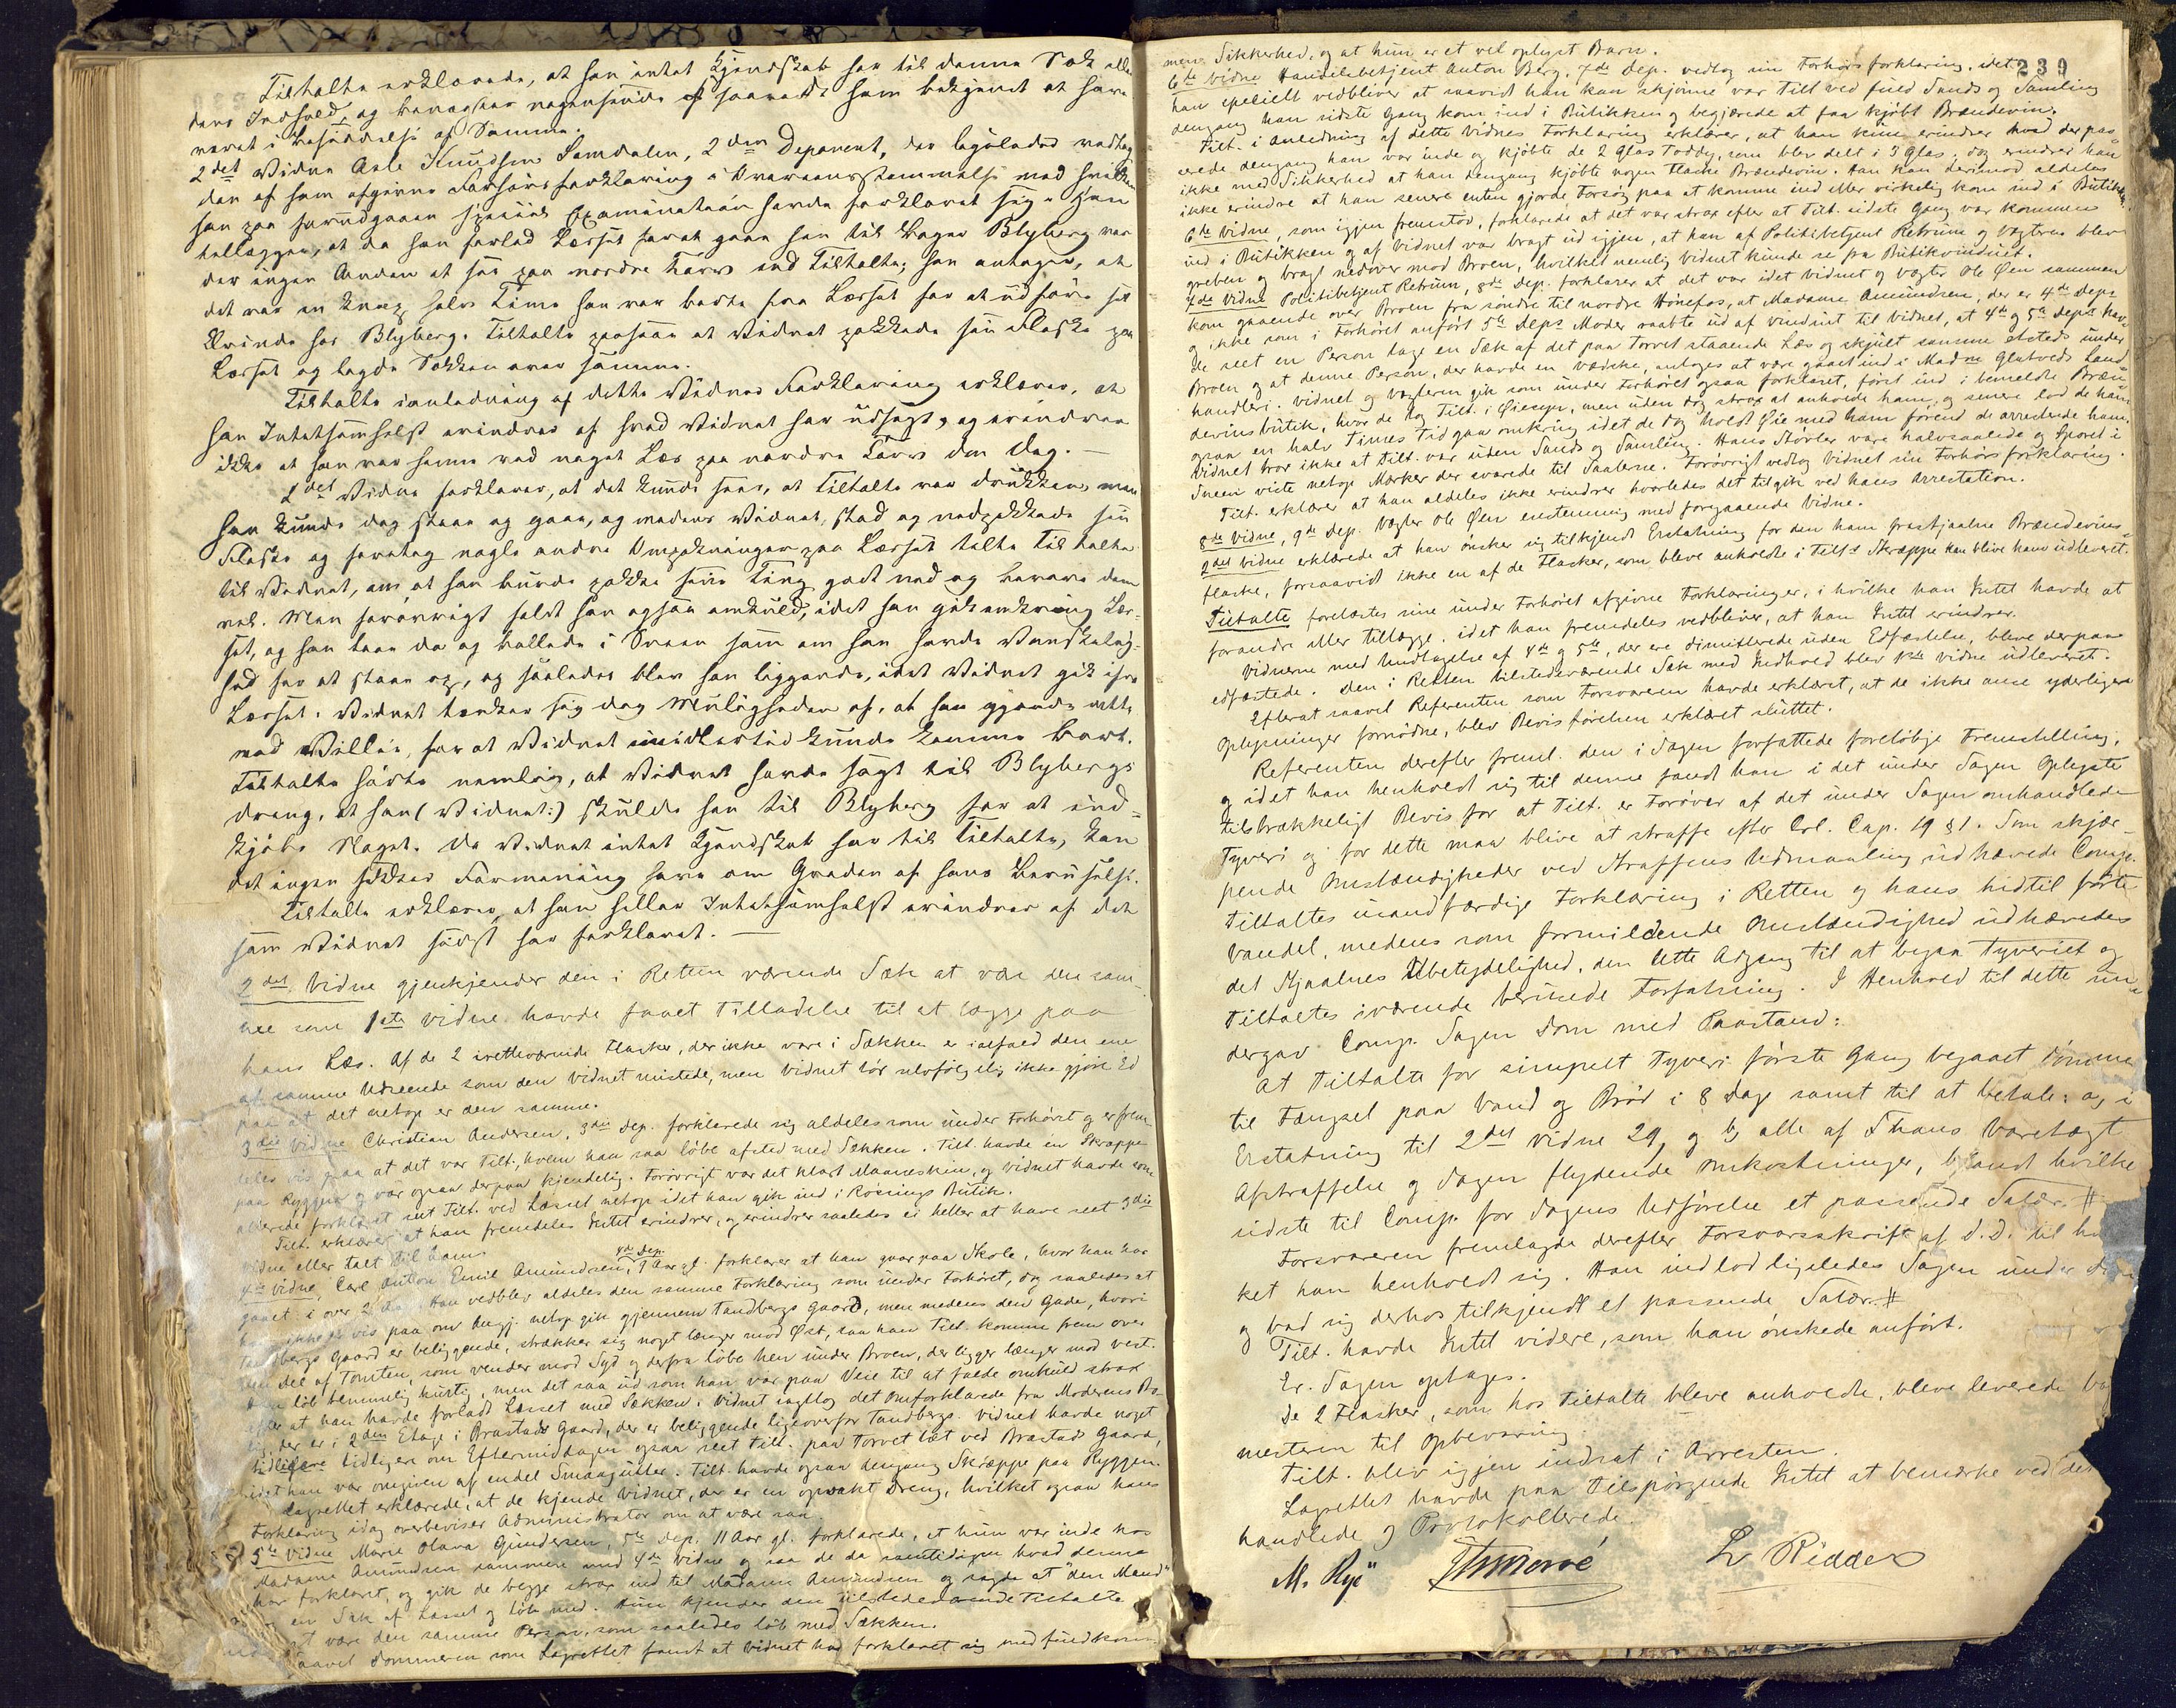 Tiltalte erklærede, at han intet Kjendskab har til denne Sæk eller
dens Indhold, og benægter nogensinde saavidt ham bekjendt at have
været i Besiddelse af Samme.
2det Vidne Asle Knudsen Somdalen, 2den Deponent, der ligeledes vedtog
den af ham afgivne Forhørsforklaring i Overeensstemmelse med hvilken
han paa forudgaaen speciel Examination havde forklaret sig. Han
tillægger, at da han forlod Læsset forat gaae hen til Kagge Blyberg var
der ingen Anden at see paa nordre Torv end Tiltalte; han antager, at
det var en knap halv Time han var borte fra Læsset for at udføre sit
Ærinde hos Blyberg. Tiltalte paasaae at Vidnet pakkede sin Flaske paa
Læsset og lagde Sækken over samme.
Tiltalte i anledning af dette Vidnes Forklaring erklærer, at
han Intetsomhelst erindrer af hvad Vidnet har udsagt, og erindrer
ikke at han var henne ved noget Læs paa nordre Torv den Dag. —
2det Vidne forklarer, at det kunde sees, at Tiltalte var drukken, men
han kunde dog staae og gaae, og medens Vidnet stod og nedpakkede sin
Flaske og foretog nogle andre Ompakninger paa Læsset talte Tiltalte
til Vidnet, om at han burde pakke sine Ting godt ned og bevare dem
vel. Men forøvrigt faldt han ogsaa omkuld, idet han gik omkring Læs-
set, og han laae da og kallede i Sneen som om han havde Vanskelig-
hed for at staae op, og saaledes blev han liggende, idet Vidnet gik ifra
Læsset. Vidnet tænker sig dog Muligheden af, at han gjorde dette
med Villie, for at Vidnet imidlertid kunde komme bort.
Tiltalte hørte nemlig, at Vidnet havde sagt til Blybergs
dreng, at han (Vidnet:) skulde hen til Blyberg for at ind-
kjøbe Noget. Da Vidnet intet Kjendskab har til Tiltalte, kan
det ingen sikker Formening have om Graden af hans Beruselse.
Tiltalte erklærer, at han heller Intetsomhelst erindrer af det
som Vidnet sidst har forklaret. —
2det Vidne gjenkjender den i Retten værende Sæk at være den sam-
me som 1ste Vidne havde faaet Tilladelse til at lægge paa
hans Læs. Af de 2 iretteværende Flasker, der ikke vare i Sækken er ialfald den ene
af samme Udseende som den Vidnet mistede, men Vidnet tør ikke gjøre Ed
paa at det netop er den samme.
3die Vidne Christian Andersen, 3die Dep. forklarede sig aldeles som under Forhøret og er frem-
deles vis paa at det var Tilt., hvem han saa løbe afsted med Sækken. Tilt. havde en Skræppe
paa Ryggen og var ogsaa derpaa kjendelig. Forøvrigt var det klart Maaneskin, og Vidnet havde som
allerede forklaret seet Tilt. ved Læsset netop idet han gik ind i Røsings Butik.
Tilt. erklærer at han fremdeles Intet erindrer, og erindrer saaledes ei heller at have seet 3die
Vidne eller talt til ham.
4de Vidne, Carl Anton Emil Amundsen, 4de Dep. 9 Aar gl. forklarer at han gaar paa Skole, hvor han har
gaaet i over 2 Aar. Han vedblev aldeles den samme Forklaring som under Forhøret, dog saaledes at
han ikke er vis paa om Angj. netop gik gjennem Tandbergs Gaard, men medens den Gade, hvori
Tandbergs Gaard er beliggende, strækker sig noget længer mod Øst, saa han Tilt. komme frem over
den Del af Tomten, som vender mod Syd og derfra løbe hen under Broen, der ligger længer mod Vest.
Han løb temmelig hurtig, men det saa ud som han var paa Veie til at falde omkuld strax
efter at han havde forladt Læsset med Sækken. Vidnet iagttog det Omforklarede fra Moderens Bo-
lig, der er i 2den Etage i Brastads Gaard, der er beliggende ligeoverfor Tandbergs. Vidnet havde noget
tidligere om Eftermiddagen ogsaa seet Tilt. paa Torvet tæt ved Brastads Gaard,
idet han var omgiven af endel Smaagutter. Tilt. havde ogsaa dengang Skræppe paa Ryggen.
Lagrettet erklærede, at de kjende Vidnet, der er en opvakt Dreng, hvilket ogsaa hans
Forklaring idag overbeviser Administrator om at være saa.
5te Vidne Marie Olava Gundersen, 5te Dep. 11 Aar gl. forklarede, at hun var inde hos
Madame Amundsen sammen med 4de Vidne og saa de da samtidigen hvad denne
har forklaret, og gik de begge strax ind til Madame Amundsen og sagde at "den Mand"
en Sæk af Læsset og løb med. Hun kjender den tilstedeværende Tiltalte
at være den samme Person, som saaledes løb med Sækken.
Saavel Dommeren som Lagrettet fandt at Vidnet har forklaret sig med fuldkom-
239
men Sikkerhed, og at hun er et vel oplyst Barn.
6te Vidne Handelsbetjent Anton Berg, 7de Dep. vedtog sin Forhørsforklaring, idet
han specielt vedbliver at saavidt han kan skjønne var Tilt. ved fuld Sands og Samling
dengang han sidste Gang kom ind i Butikken og begjærede at faa kjøbt Brændevin.
Tilt. i Anledning af dette Vidnes Forklaring erklærer, at han kun erindrer hvad der pas-
serede dengang han var inde og kjøbte de 2 Glas Toddy, som blev delt i 3 Glas, dog erindrer han
ikke med Sikkerhed at han dengang kjøbte nogen Flaske Brændevin. Han kan derimod aldeles
ikke erindre at han senere enten gjorde Forsøg paa at komme ind eller virkelig kom ind i Butikken.
6te Vidne, som igjen fremstod, forklarede at det var strax efter at Tilt. sidste Gang var kommen
ind i Butikken og af Vidnet var bragt ud igjen, at han af Politibetjent Retrum og Vægteren blev
greben og bragt nedover mod Broen, hvilket nemlig Vidnet kunde se fra Butikvinduet.
7de Vidne Politibetjent Retrum, 8de Dep. forklarer at det var idet Vidnet og Vægter Ole Øen sammen
kom gaaende over Broen fra søndre til nordre Hønefos, at Madame Amundsen, der er 4de Deps
og ikke som i Forhøret anført 5te Deps Moder raabte ud af Vinduet til Vidnet, at 4de og 5te Dept hav-
de seet en Person tage en Sæk af det paa Torvet staaende Læs og skjult samme etsteds under
Broen og at denne Person, der havde en Vædske, antoges at være gaaet ind i Madme Glatveds Land-
handleri. Vidnet og Vægteren gik som under Forhøret ogsaa forklaret, først ind i bemeldte Bræn-
devinsbutik, hvor de tog Tilt. i Øiesyn, men uden dog strax at anholde ham, og senere lod de ham
ogsaa en halv Times Tid gaa omkring idet de dog holdt Øie med ham førend de arresterede ham.
Vidnet tror ikke at Tilt. var uden Sands og Samling. Hans Støvler vare halvsaalede og Sporet i
Sneen viste netop Mærker der svarede til Saalerne. Forøvrigt vedtog Vidnet sin Forhørsforklaring.
Tilt. erklærer at han aldeles ikke erindrer hvorledes det tilgik ved hans Arrestation.
8de Vidne, 9de Dep. Vægter Ole Øen enstemmig med foregaaende Vidne.
2det Vidne erklærede at han ønsker sig tilkjendt Erstatning for den ham frastjaalne Brændevins-
flaske, forsaavidt ikke en af de Flasker, som bleve anholdte i Tilts Skræppe kan blive ham udleveret.
Tiltalte forelæstes sine under Forhøret afgivne Forklaringer, i hvilke han Intet havde at
forandre eller tillægge, idet han fremdeles vedbliver, at han Intet erindrer.
Vidnerne med Undtagelse af 4de og 5te, der ere dimitterede uden Edfæstelse, bleve derpaa
edfæstede. Den i Retten tilstedeværende Sæk med Indhold blev 1ste Vidne udleveret.
Efterat saavel Referenten som Forsvareren havde erklæret, at de ikke anse yderligere
Oplysninger fornødne, blev Bevisførelsen erklæret sluttet.
Referenten derefter freml. den i Sagen forfattede foreløbige Fremstilling,
og idet han henholdt sig til denne fandt han i det under Sagen Oplyste
tilstrækkeligt Bevis for at Tilt. er Forøver af det under Sagen omhandlede
Tyveri og for dette maa blive at straffe efter Crl. Cap. 19 § 1. Som skjær-
pende Omstændigheder ved Straffens Udmaaling udhævede Comp.
Tiltaltes usandfærdige Forklaring i Retten og hans hidtil førte
Vandel, medens som formildende Omstændighed udhævedes
det Stjaalnes Ubetydelighed, den lette Adgang til at begaa Tyveriet og
Tiltaltes iværende berusede Forfatning. I Henhold til dette un-
dergav Comp. Sagen Dom med Paastand:
At Tiltalte for simpelt Tyveri første Gang begaaet dømmes
til Fængsel paa Vand og Brød i 8 Dage samt til at betale: a, i
Erstatning til 2det Vidne 29, og b, alle af hans Varetægt
Afstraffelse og Sagen flydende Omkostninger, blandt hvilke
sidste til Comp. for Sagens Udførelse et passende Salær. #
Forsvareren fremlagde derefter Forsvarsskrift af d. D. til
ket han henholdt sig. Han indlod ligeledes Sagen under
og bad sig derhos tilkjendt et passende Salær. #
Tilt. havde Intet videre, som han ønskede anført.
Er. Sagen optages.
De 2 Flasker, som hos Tiltalte bleve anholdte, bleve leverede
mesteren til Opbevaring.
Tilt. blev igjen indsat i Arresten.
Lagrettet havde paa Tilspørgende Intet at bemærke ved
handlede og Protokollerede.
M. Rye L Ridder